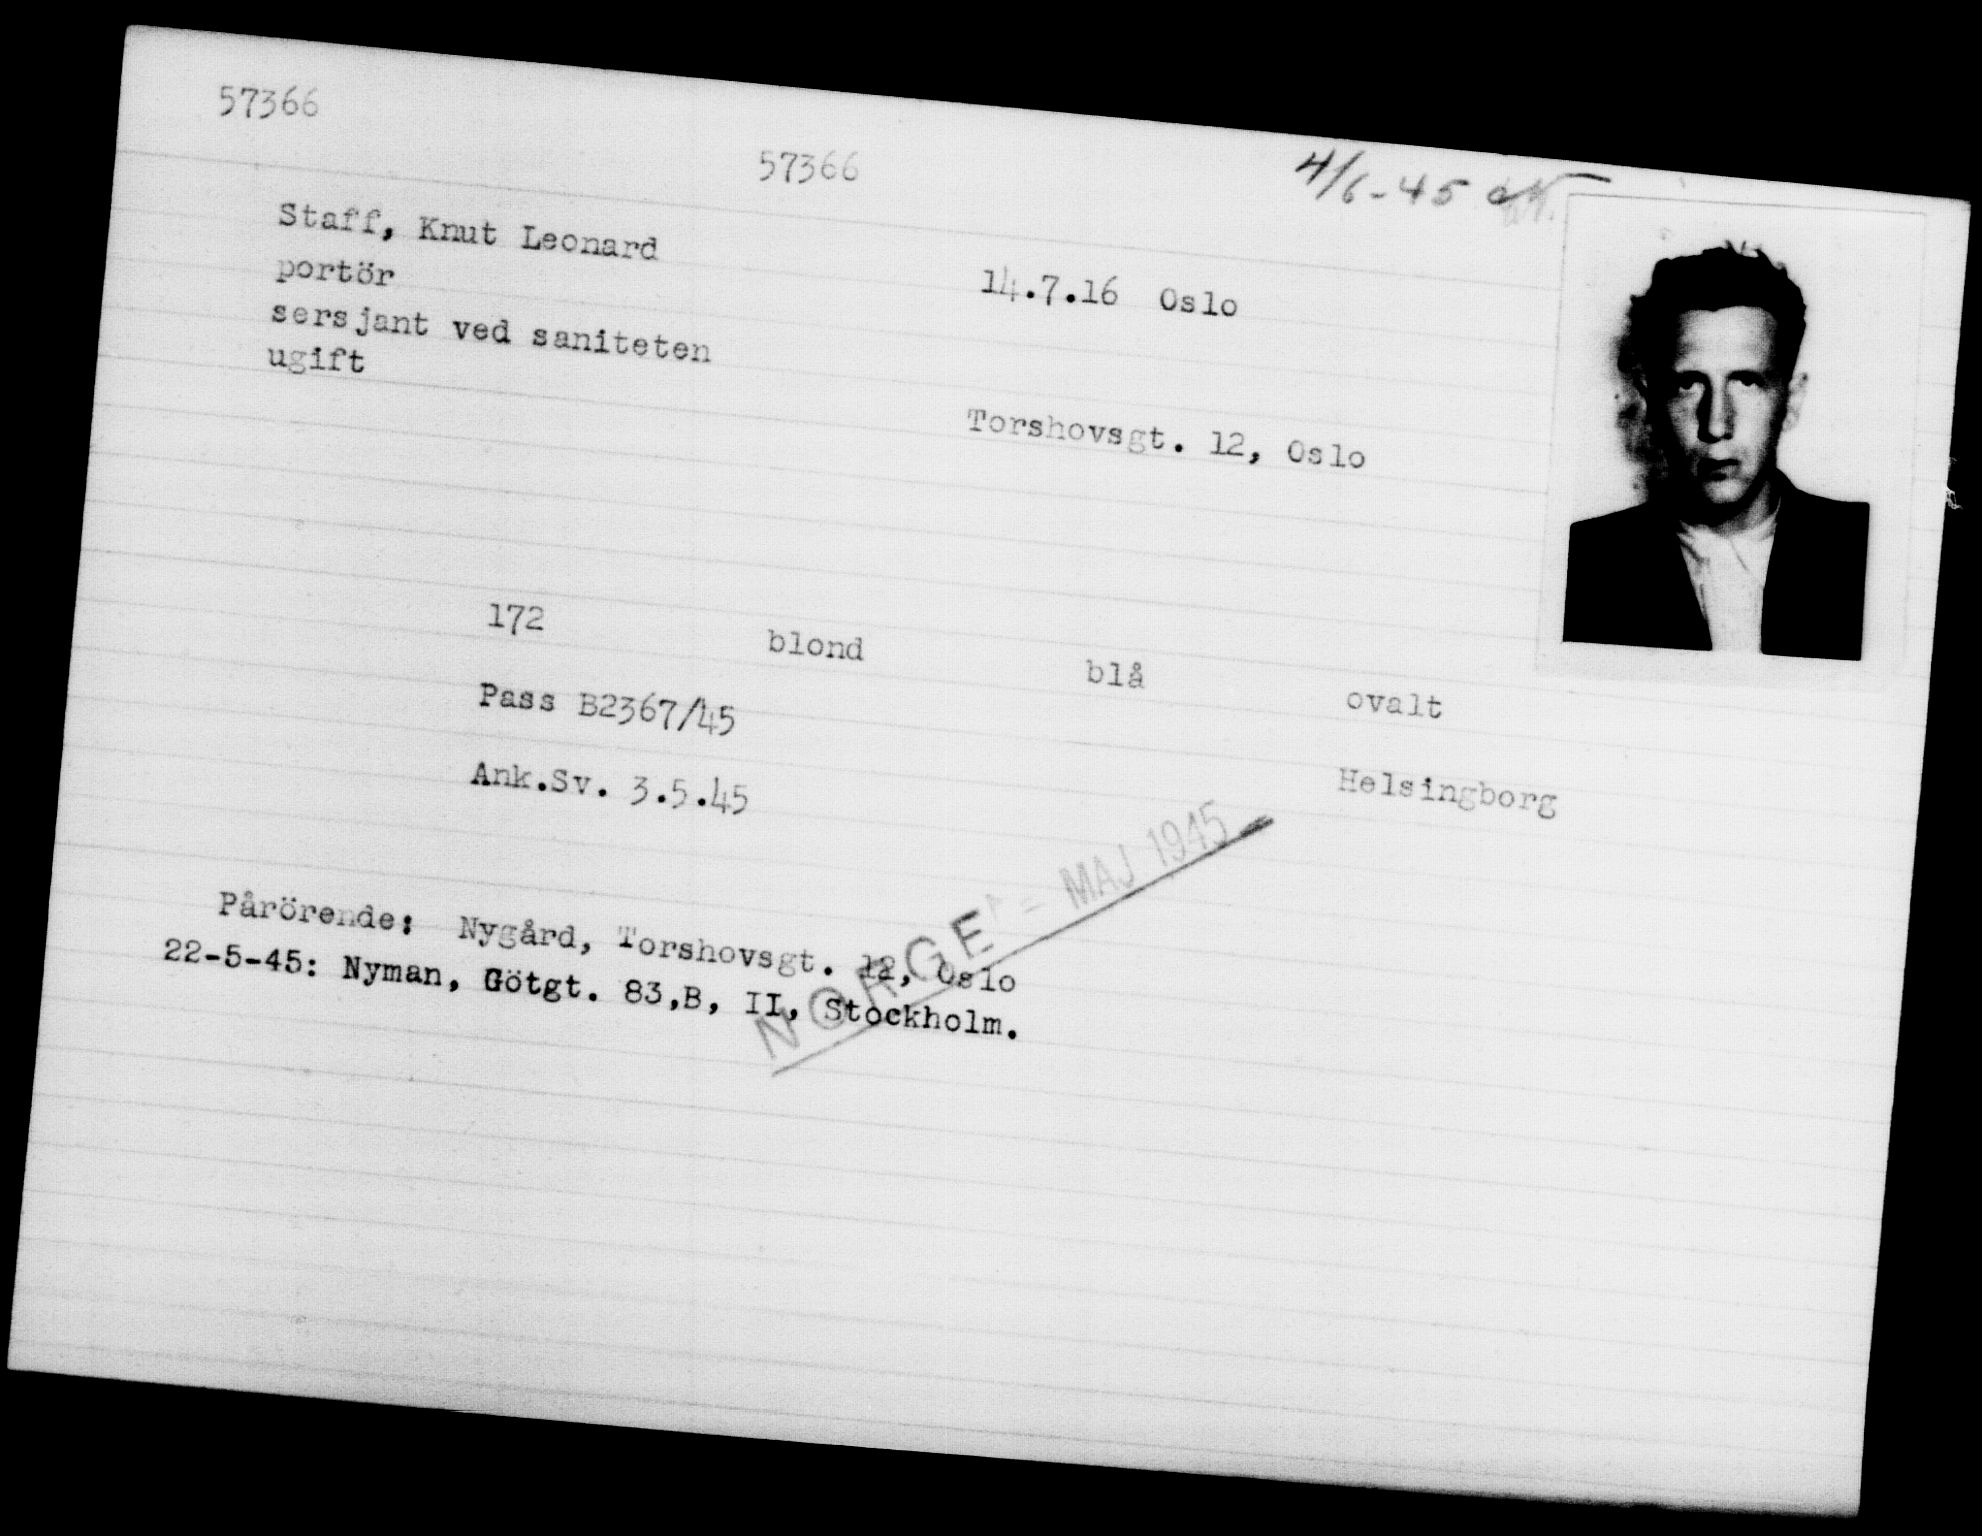 57366
57366
4/6-45
Staff, Knut Leonard
14.7.16 Oslo
portör
sersjant ved saniteten
ugift
Torshovsgt. 12, Oslo
172 blond blå ovalt
Pass B2367/45
Ank.Sv. 3.5.45 Helsingborg
NORGE - MAJ 1945
Pårörende: Nygård, Torshovsgt. 12, Oslo
22-5-45: Nyman, Götgt. 83,B, II, Stockholm.